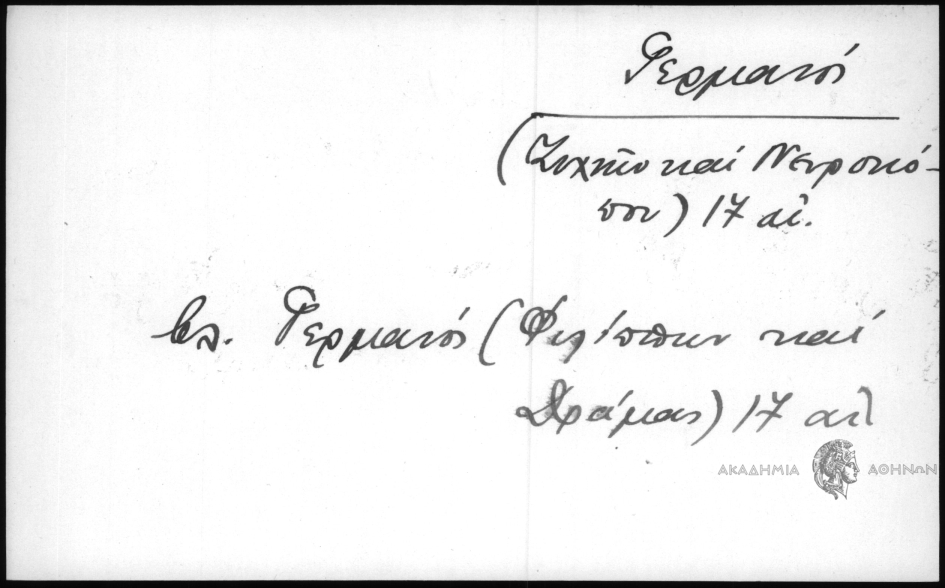 Γερμανός
(Ζιχνῶν καί Νευροκό-
που) 17 αἰ.
βλ. Γερμανός (Φιλίππων καί
Δράμας) 17 αἰ
ΑΚΑΔΗΜΙΑ ΑΘΗΝΩΝ